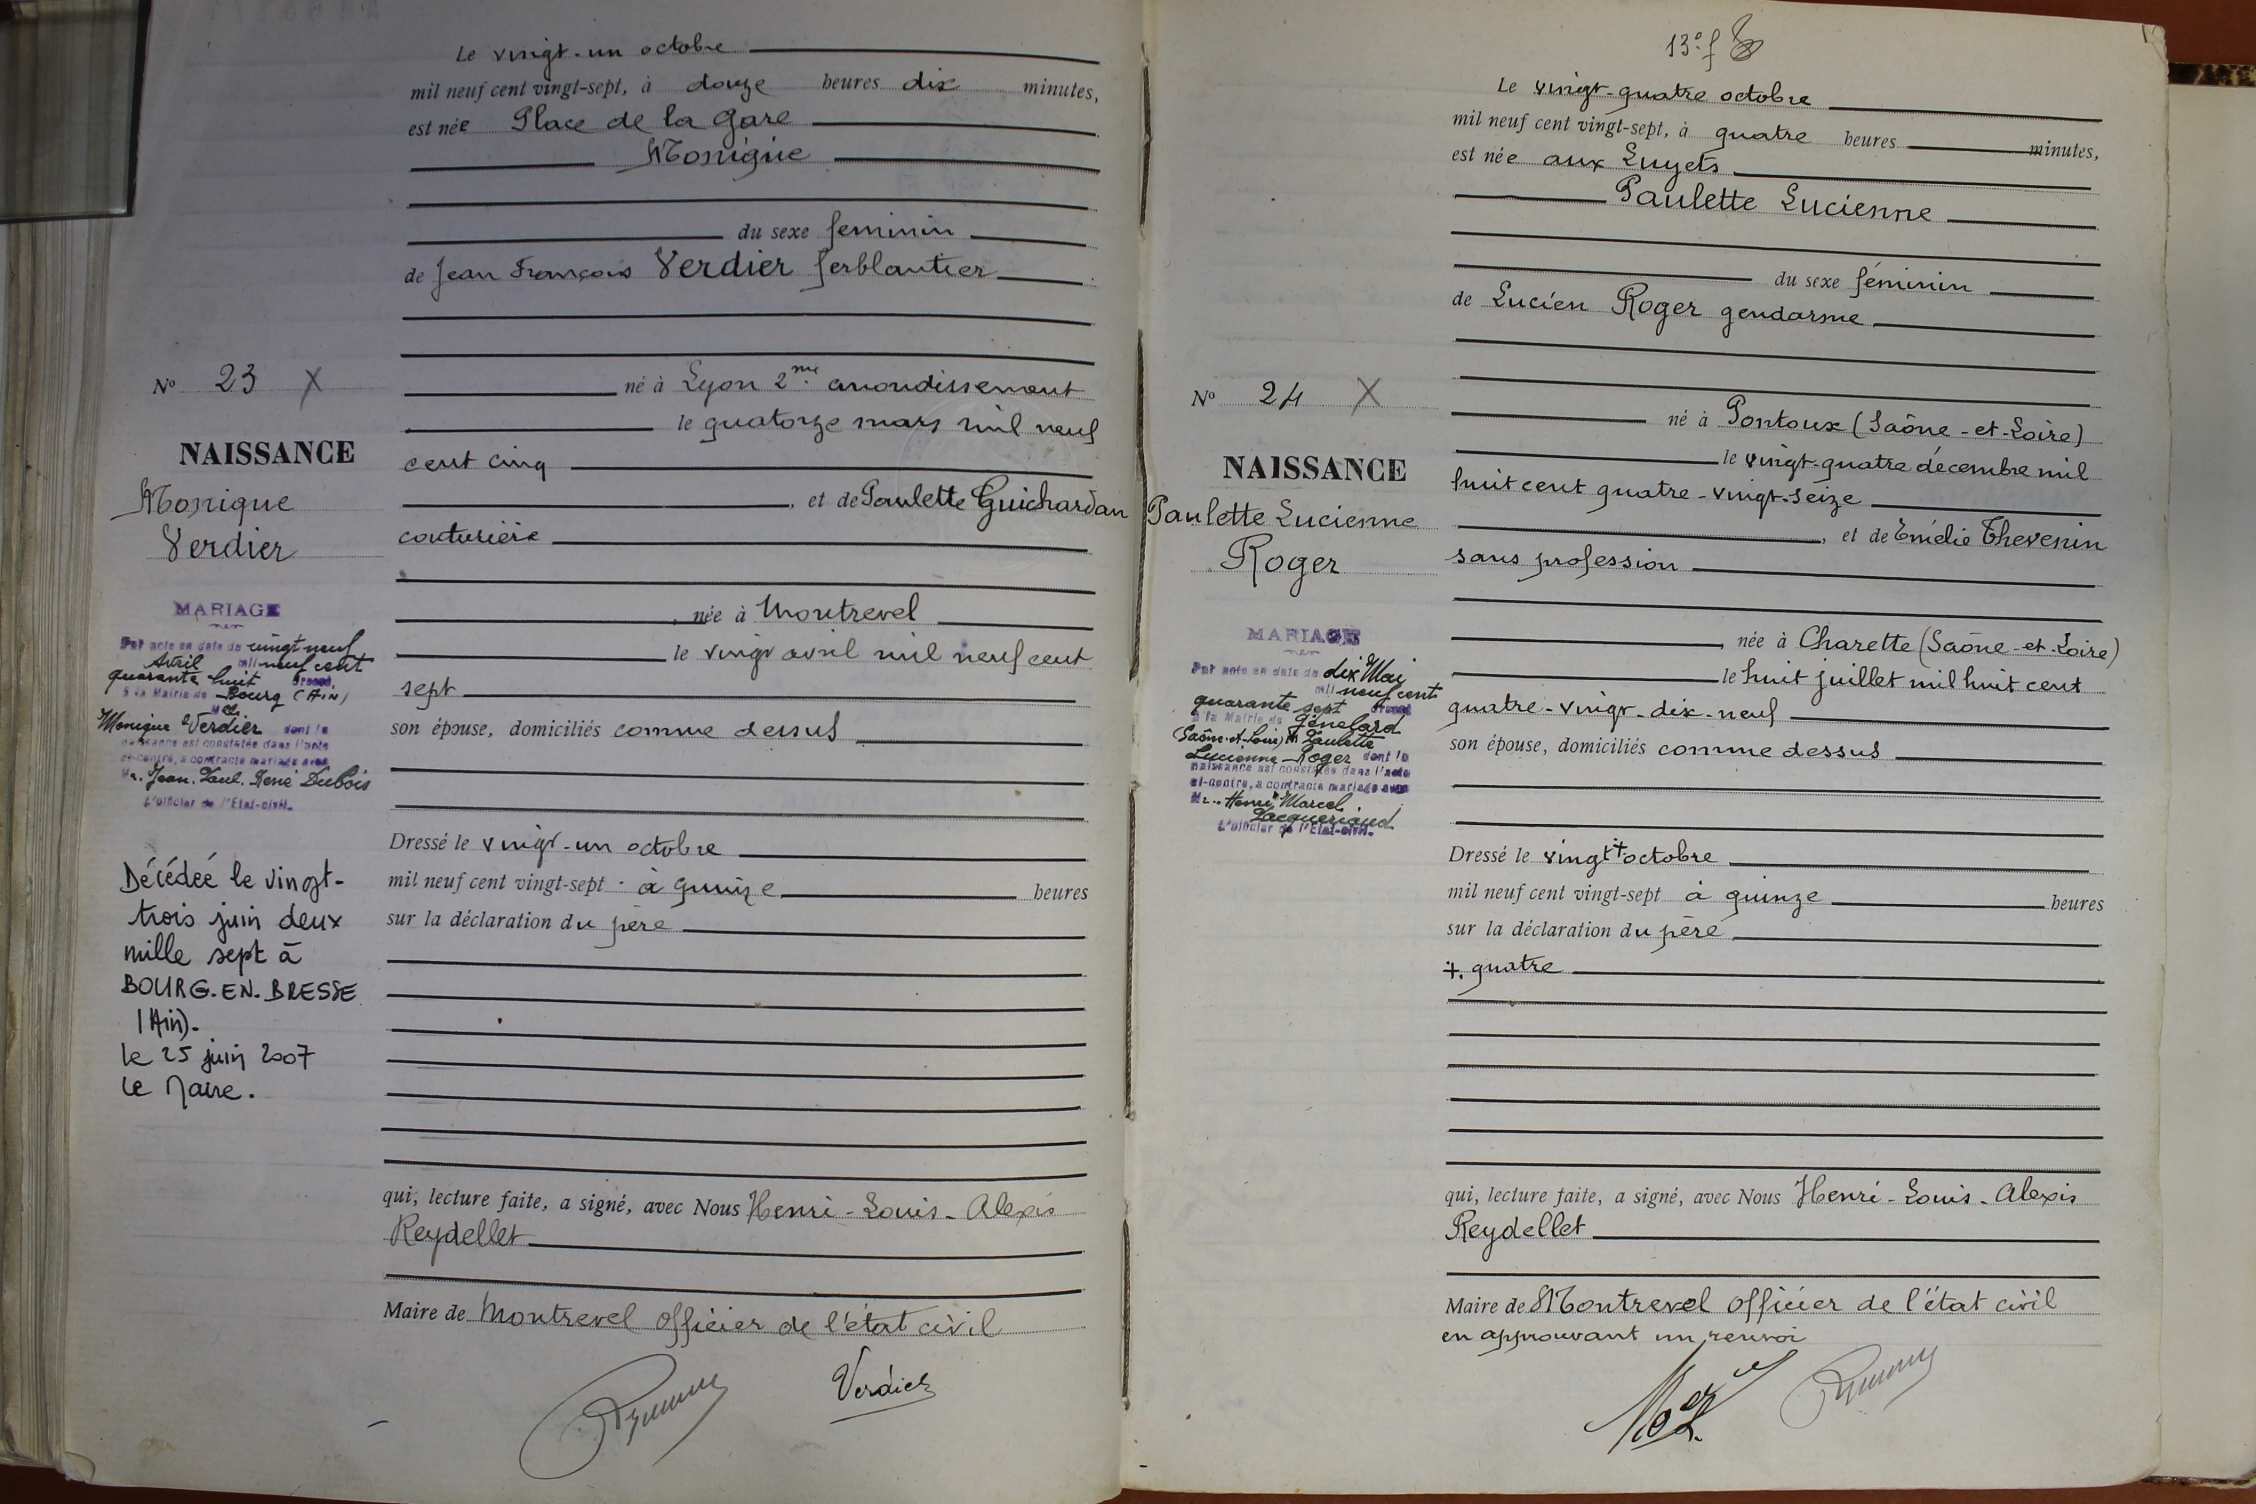 Le vingt-un octobre
mil neuf cent vingt-sept, à douze heures dix minutes,
est née Place de la Gare
Monique
du sexe féminin
de Jean François Verdier ferblantier
né à Lyon 2me arrondissement
le quatorze mars mil neuf
cent cinq
et de Paulette Guichardan
couturière
, née à Montrevel
le vingt avril mil neuf cent
sept
son épouse, domiciliés comme dessus
Dressé le vingt-un octobre
mil neuf cent vingt-sept à quinze heures
sur la déclaration du père
qui, lecture faite, a signé, avec Nous Henri-Louis-Alexis
Reydellet
Maire de Montrevel officier de l'état civil
Verdier
No 23 X
NAISSANCE
Monique
Verdier
MARIAGE
Par acte en date du vingt neuf
Avril mil neuf cent
quarante huit dressé
à la Mairie de Bourg (Ain)
Monique Verdier dont la
naissance est constatée dans l'acte
ci-contre, a contracté mariage avec
Mr. Jean. Paul. René Dubois
L'officier de l'Etat-civil.
Décédée le vingt-
trois juin deux
mille sept à
BOURG-EN-BRESSE
(Ain).
le 25 juin 2007
Le Maire.
13e f
Le vingt-quatre octobre
mil neuf cent vingt-sept, à quatre heures minutes,
est née aux Luyets
Paulette Lucienne
du sexe féminin
de Lucien Roger gendarme
né à Pontoux (Saône-et-Loire)
le vingt-quatre décembre mil
huit cent quatre-vingt-seize
, et de Emélie Thevenin
sans profession
, née à Charette (Saône-et-Loire)
le huit juillet mil huit cent
quatre-vingt-dix-neuf
son épouse, domiciliés comme dessus
Dressé le vingt + octobre
mil neuf cent vingt-sept à quinze heures
sur la déclaration du père
+. quatre
qui, lecture faite, a signé, avec Nous Henri-Louis-Alexis
Reydellet
Maire de Montrevel officier de l'état civil
en approuvant un renvoi
No 24 X
NAISSANCE
Paulette Lucienne
Roger
MARIAGE
Par acte en date du dix Mai
mil neuf cent
quarante sept dressé
à la Mairie de Génelard
(Saône-et-Loire) Paulette
Lucienne Roger dont la
naissance est constatée dans l'acte
ci-contre, a contracté mariage avec
Mr. Henri Marcel
Jacqueriaud
L'officier de l'Etat-civil.